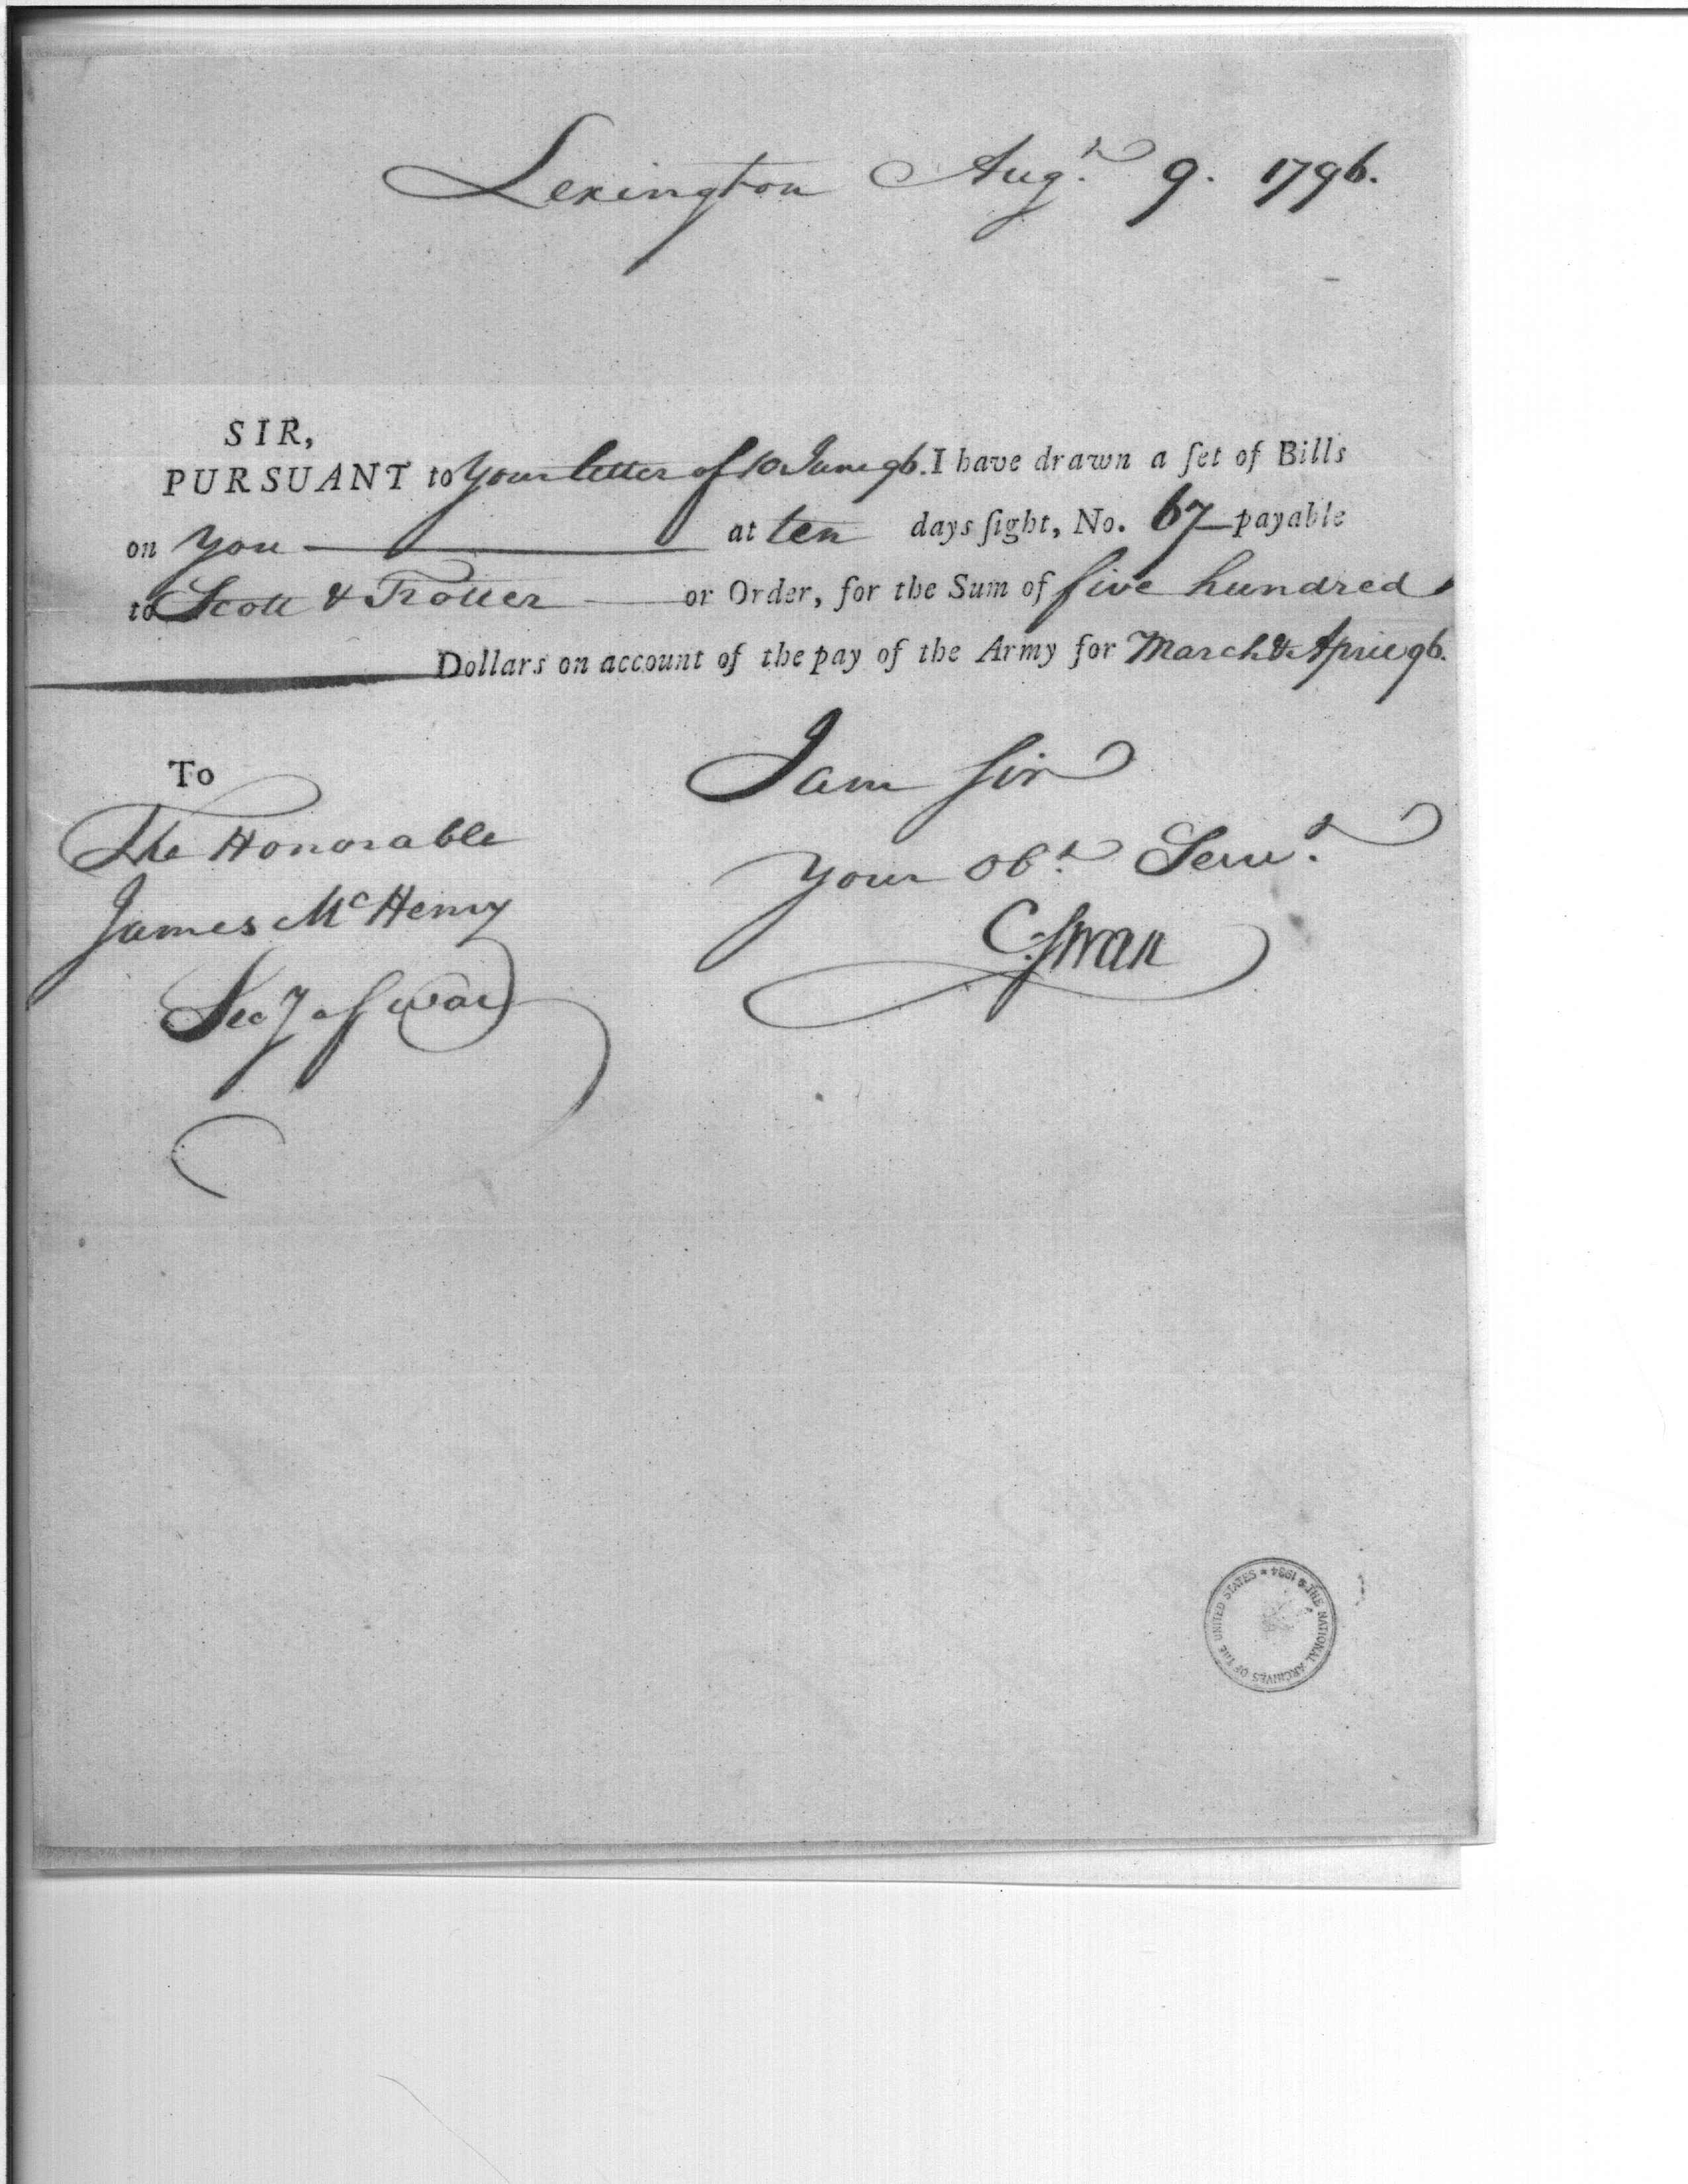 Lexington Augt. 9. 1796.
SIR,
PURSUANT to your letter of 10 June 96. I have drawn a ſet of Bills
on you at ten days ſight, No. 67 payable
to Scott & Trotter or Order, for the Sum of five hundred
Dollars on account of the pay of the Army for March & April 96.
I am Sir
your obt. Servt.
C. Swan
To
The Honorable
James McHenry
Secy of War
THE NATIONAL ARCHIVES OF THE UNITED STATES ★ 1934 ★